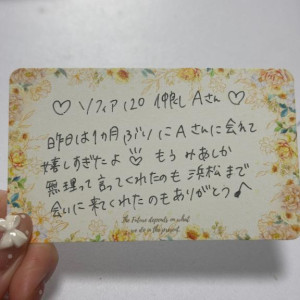 ♡ ソフィア120 仲良し Aさん ♡
昨日は1カ月ぶりにAさんに会えて
嬉しすぎたよ♡ もうみあしか
無理って言ってくれたのも 浜松まで
会いに来てくれたのもありがとう♪
The Future depends on what
we do in the present.